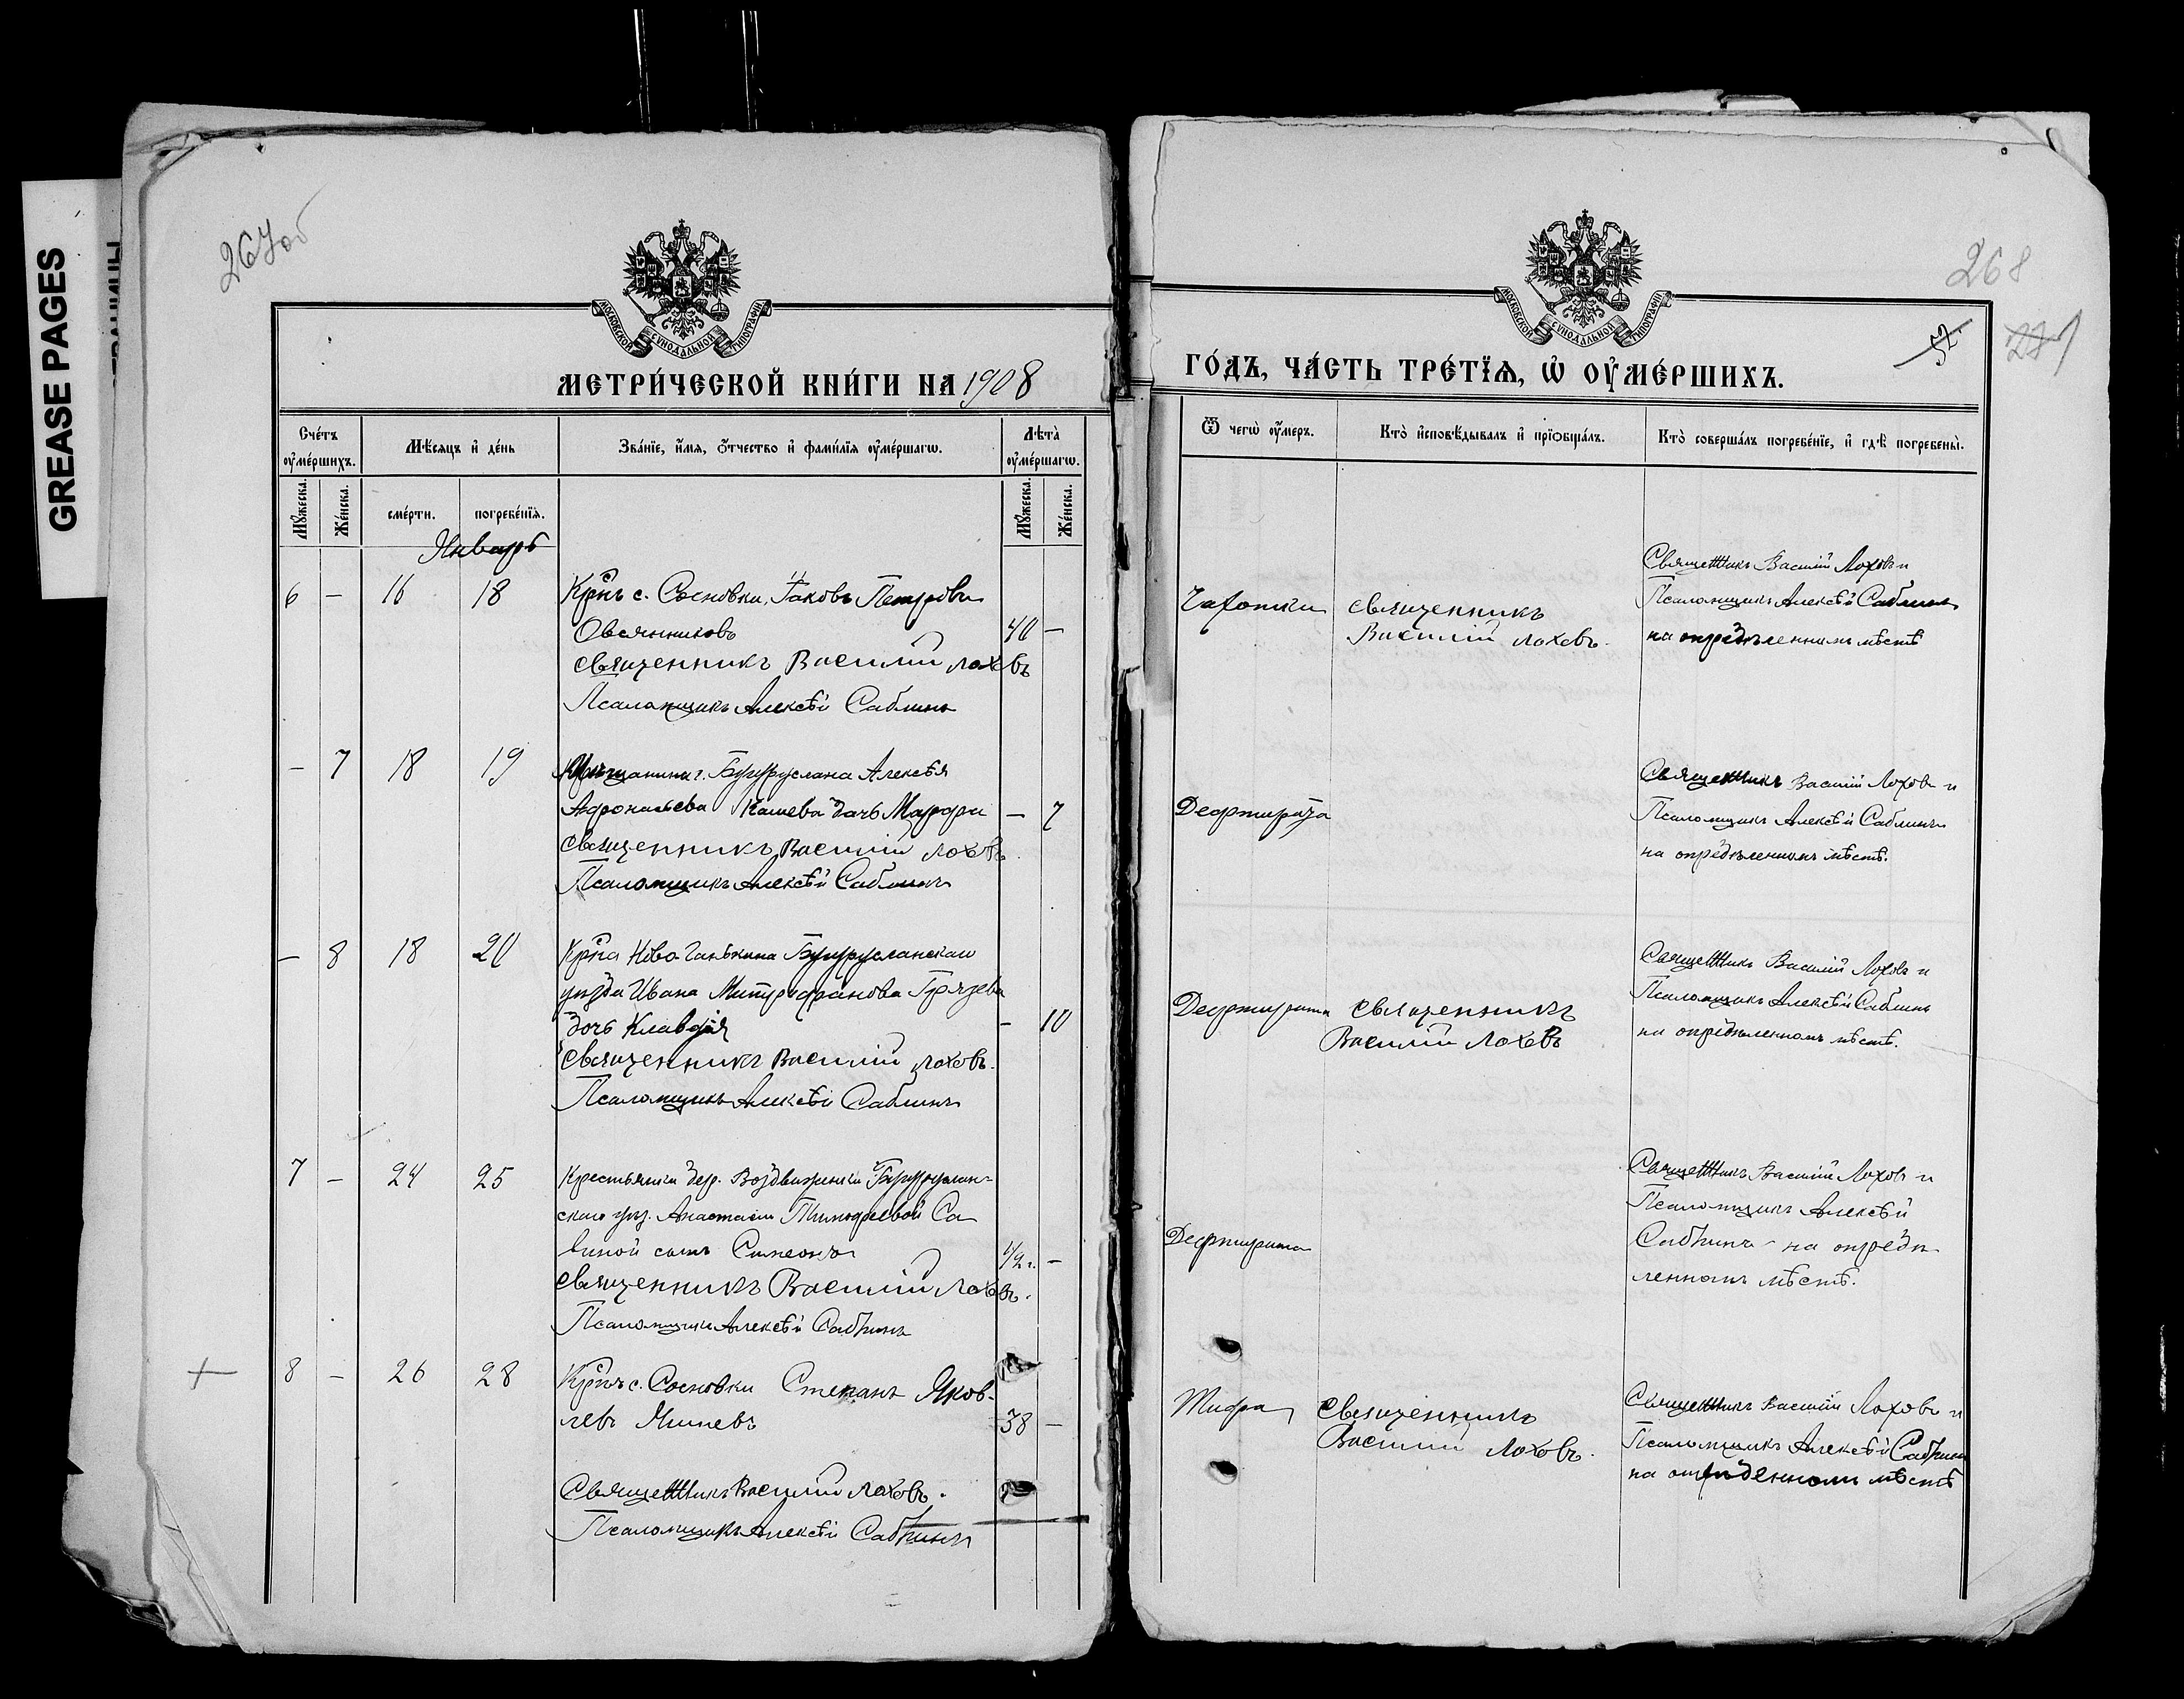 GREASE PAGES
267об
МОСКОВСКОЙ СѴНОДАЛЬНОЙ ТИПОГРАФІИ
МЕТРИ́ЧЕСКОЙ КНИ́ГИ НА 1908
Сче́тъ ᲂу҆ме́ршихъ.
Мѣ́сяцъ и҆ де́нь
Зва́нїе, и҆́мя, ѻ҆́тчество и҆ фами́лїя ᲂу҆ме́ршагѡ.
Лѣта̀ ᲂу҆ме́ршагѡ.
Мꙋ́жеска.
Же́нска.
сме́рти.
погребе́нїѧ.
Мꙋ́жеска.
Же́нска.
Январь
6 — 16 18 Крнъ с. Сосновки, Іаковъ Петровъ
Овсянниковъ 40 —
священникъ Василій Лоховъ
Псаломщикъ Алексѣй Саблинъ
— 7 18 19 Мѣщанина г. Бугуруслана Алексѣя
Афонасьева дочь Марфа — 7
священникъ Василій Лоховъ
Псаломщикъ Алексѣй Саблинъ
— 8 18 20 Крна Ново Ганькина Бугурусланскаго
уѣзда Ивана Митрофанова Грязева
дочь Клавдія — 10
священникъ Василій Лоховъ.
Псаломщикъ Алексѣй Саблинъ
7 — 24 25 Крестьянки дер. Воздвиженки Бугуруслан-
скаго уѣз. Анастасіи Тимофеевой Са
виной сынъ Симеонъ 1/2 г. —
священникъ Василій Лоховъ.
Псаломщикъ Алексѣй Саблинъ
8 — 26 28 Крнъ с. Сосновки Степанъ Яков-
левъ 38 —
Священникъ Василій Лоховъ.
Псаломщикъ Алексѣй Саблинъ
268
МОСКОВСКОЙ СѴНОДАЛЬНОЙ ТИПОГРАФІИ
ГО́ДЪ, ЧА́СТЬ ТРЕ́ТЇѦ, Ѡ҆ ОУ҆МЕ́РШИХЪ.
Ѿ чегѡ̀ ᲂу҆́меръ.
Кто̀ и҆сповѣ́дывалъ и҆ прїѡбща́лъ.
Кто̀ соверша́лъ погребе́нїе, и҆ гдѣ̀ погребены̀.
Чахотки
священникъ
Василій Лоховъ.
Священникъ Василій Лоховъ и
Псаломщикъ Алексѣй Саблинъ
на опредѣленномъ мѣстѣ
Дефтирита
Священникъ Василій Лоховъ и
Псаломщикъ Алексѣй Саблинъ
на опредѣленномъ мѣстѣ.
Дефтирита
священникъ
Василій Лоховъ
Священникъ Василій Лоховъ и
Псаломщикъ Алексѣй Саблинъ
на опредѣленномъ мѣстѣ.
Дефтирита
Священникъ Василій Лоховъ и
Псаломщикъ Алексѣй
Саблинъ на опредѣ
ленномъ мѣстѣ.
Тифа
священникъ
Василій Лоховъ.
Священникъ Василій Лоховъ и
Псаломщикъ Алексѣй Саблинъ
на мѣстѣ